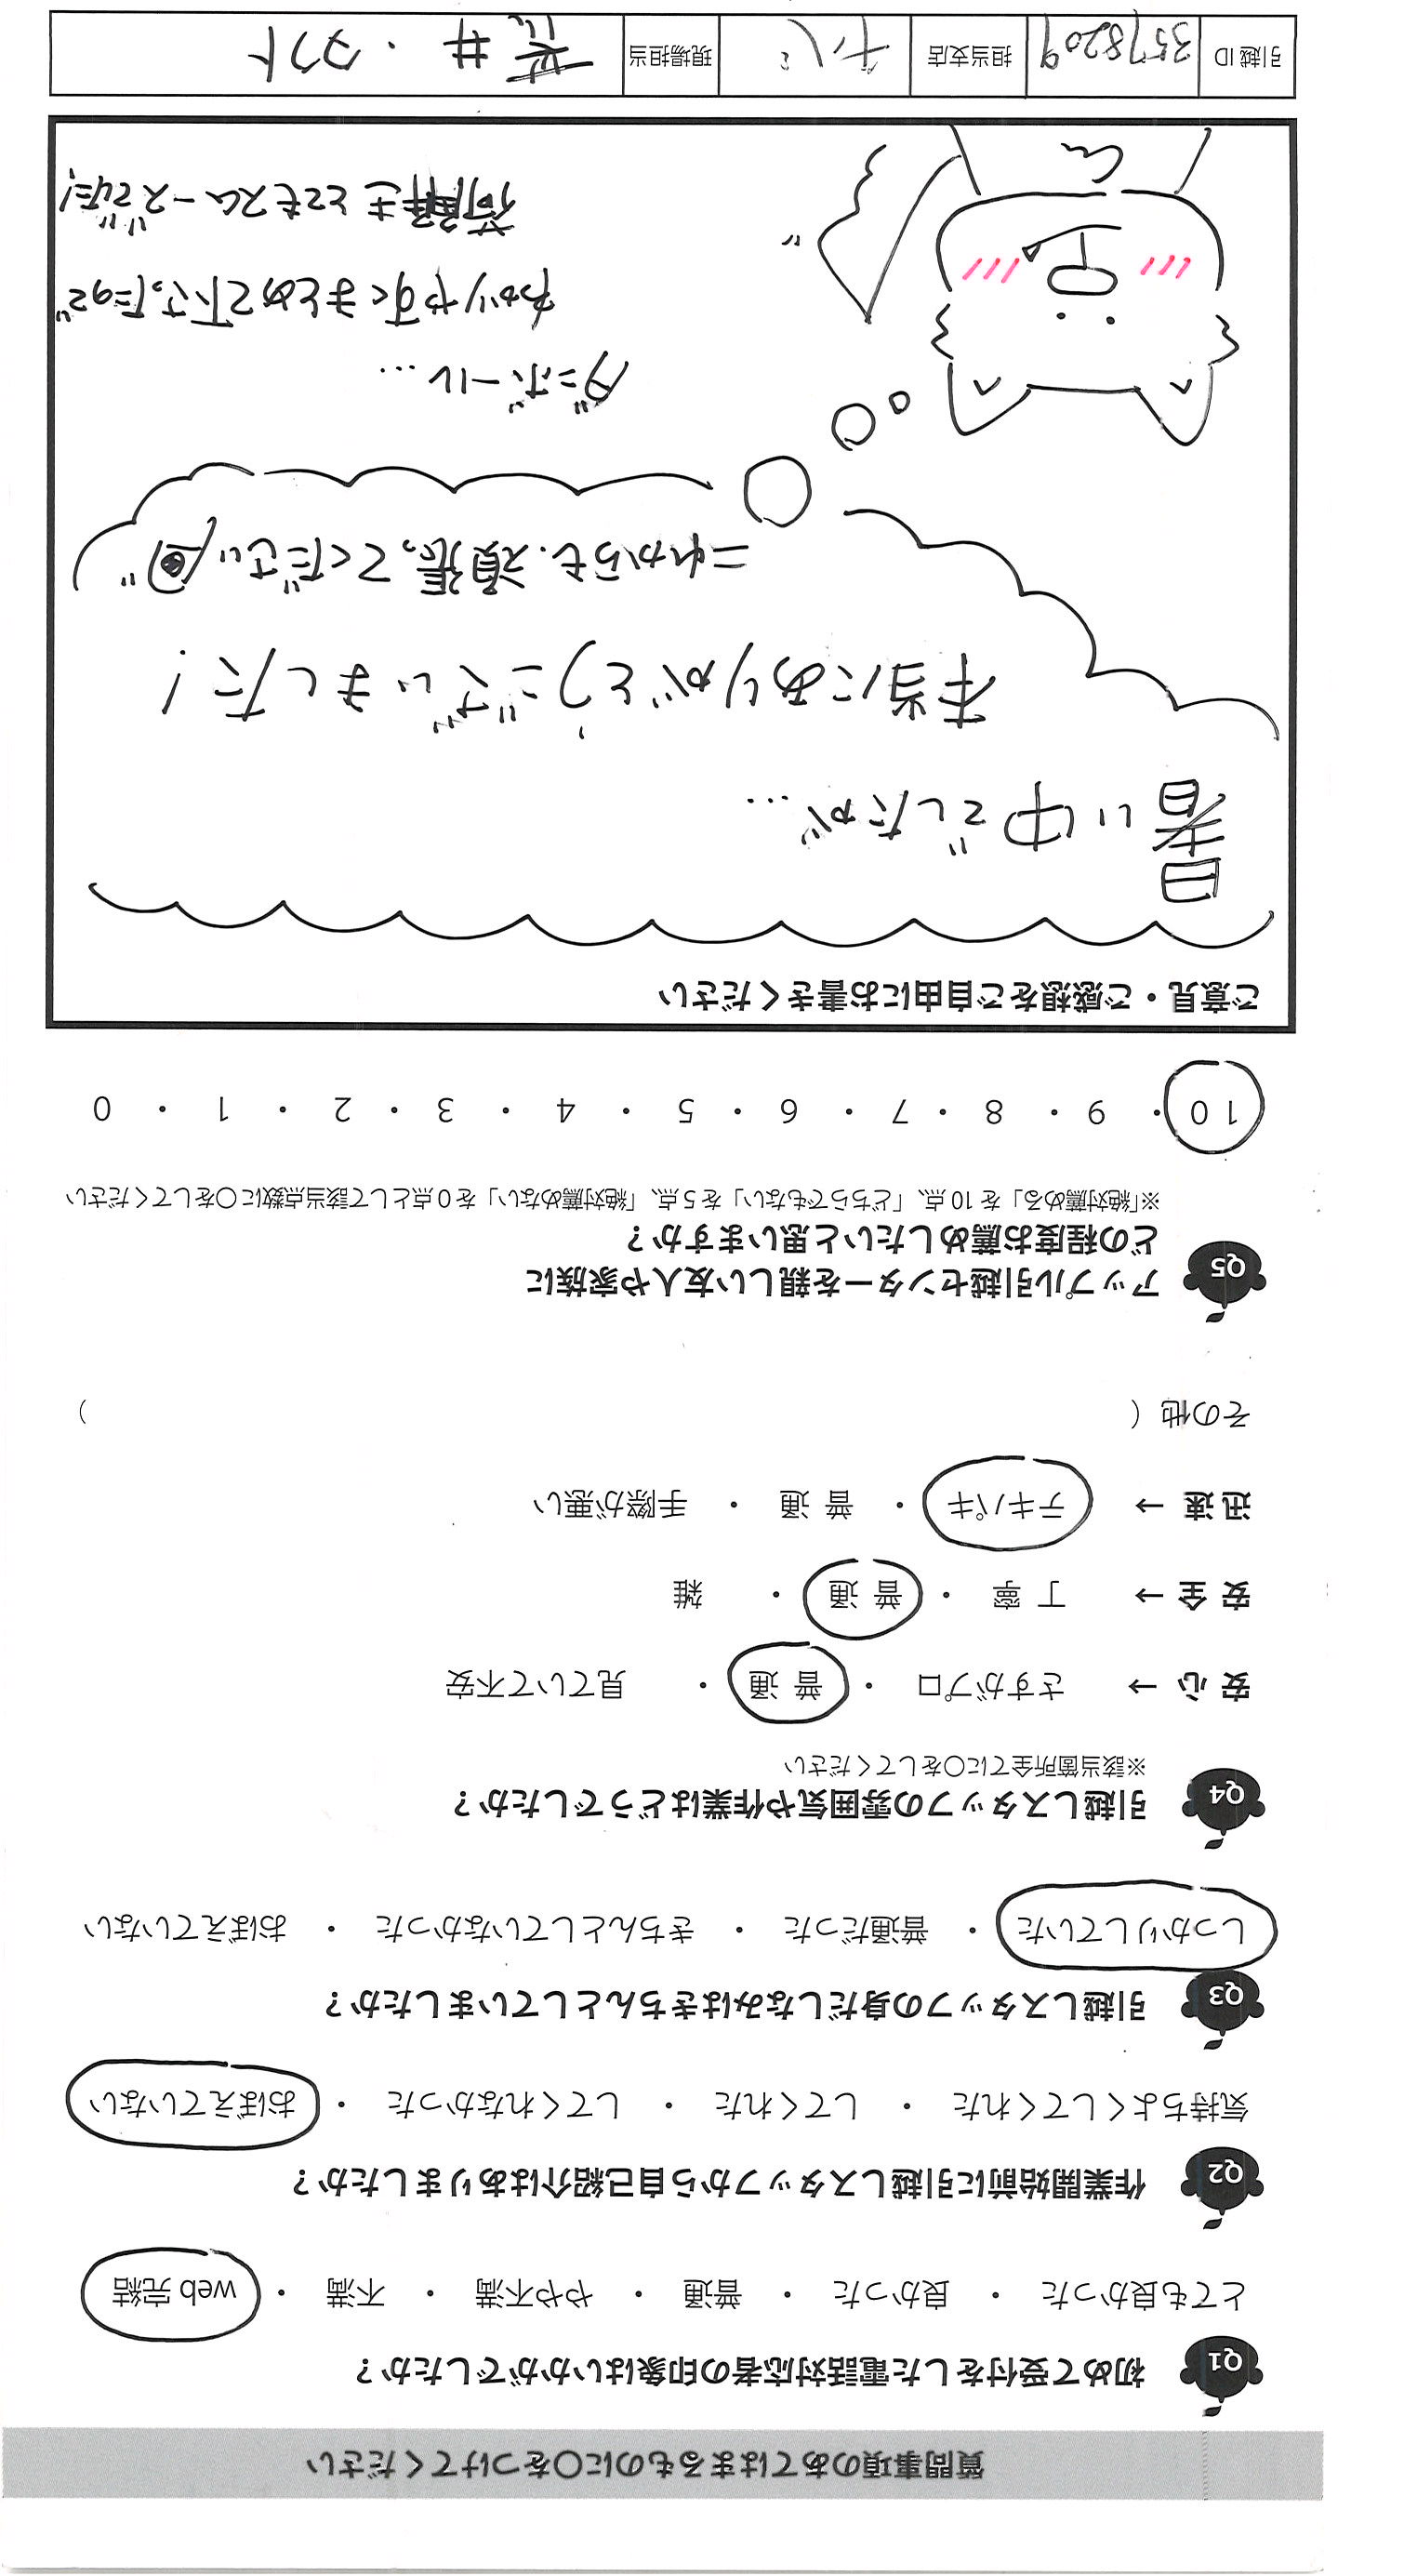 質問事項のあてはまるものに○をつけてください
Q1 初めて受付をした電話対応者の印象はいかがでしたか？
とても良かった ・ 良かった ・ 普通 ・ やや不満 ・ 不満 ・ web 完結
Q2 作業開始前に引越しスタッフから自己紹介はありましたか？
気持ちよくしてくれた ・ してくれた ・ してくれなかった ・ おぼえていない
Q3 引越しスタッフの身だしなみはきちんとしていましたか？
しっかりしていた ・ 普通だった ・ きちんとしていなかった ・ おぼえていない
Q4 引越しスタッフの雰囲気や作業はどうでしたか？
※該当箇所全てに○をしてください
安 心 → さすがプロ ・ 普 通 ・ 見ていて不安
安 全 → 丁 寧 ・ 普 通 ・ 雑
迅 速 → テキパキ ・ 普 通 ・ 手際が悪い
その他（ ）
Q5 アップル引越センターを親しい友人や家族に
どの程度お薦めしたいと思いますか？
※「絶対薦める」を 10 点、「どちらでもない」を 5 点、「絶対薦めない」を 0 点として該当点数に○をしてください
10 ・ 9 ・ 8 ・ 7 ・ 6 ・ 5 ・ 4 ・ 3 ・ 2 ・ 1 ・ 0
ご意見・ご感想をご自由にお書きください
暑い中でしたが…
本当にありがとうございました！
これからも頑張ってください
ダンボール…
わかりやすくまとめて下さったので
荷解きとてもスムーズでした！
引越 ID 3578209 担当支店 現場担当 荒井・